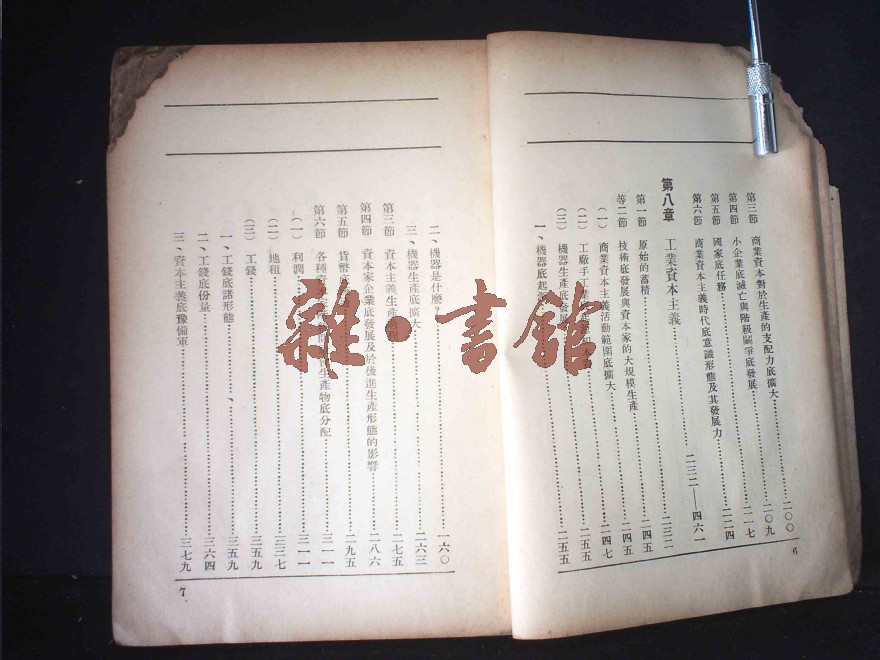 第三節 商業資本對於生產的支配力底擴大……二〇〇
第四節 小企業底滅亡與階級鬭爭底發展……二〇九
第五節 國家底任務……二一七
第六節 商業資本主義時代底意識形態及其發展力……二二四
第八章 工業資本主義……二三二——四六一
第一節 原始的蓄積……二三二
等二節 技術底發展與資本家的大規模生產……二四五
（一） 商業資本主義活動範圍底擴大……二四五
（二） 工廠手工業……二四七
（三） 機器生產底發展……二五五
一、機器底起……二五五
6
二、機器是什麼？……一六〇
三、機器生產底擴大……二六三
第三節 資本主義生產……二七五
第四節 資本家企業底發展及於後進生產形態的影響……二八六
第五節 貨幣底……二九五
第六節 各種資……生產物底分配……三一一
（一） 利潤……三一一
（二） 地租……三三七
（三） 工錢……三五九
一、工錢底諸形態……三五九
二、工錢底份量……三六四
三、資本主義底豫備軍……三七九
7
雜·書館